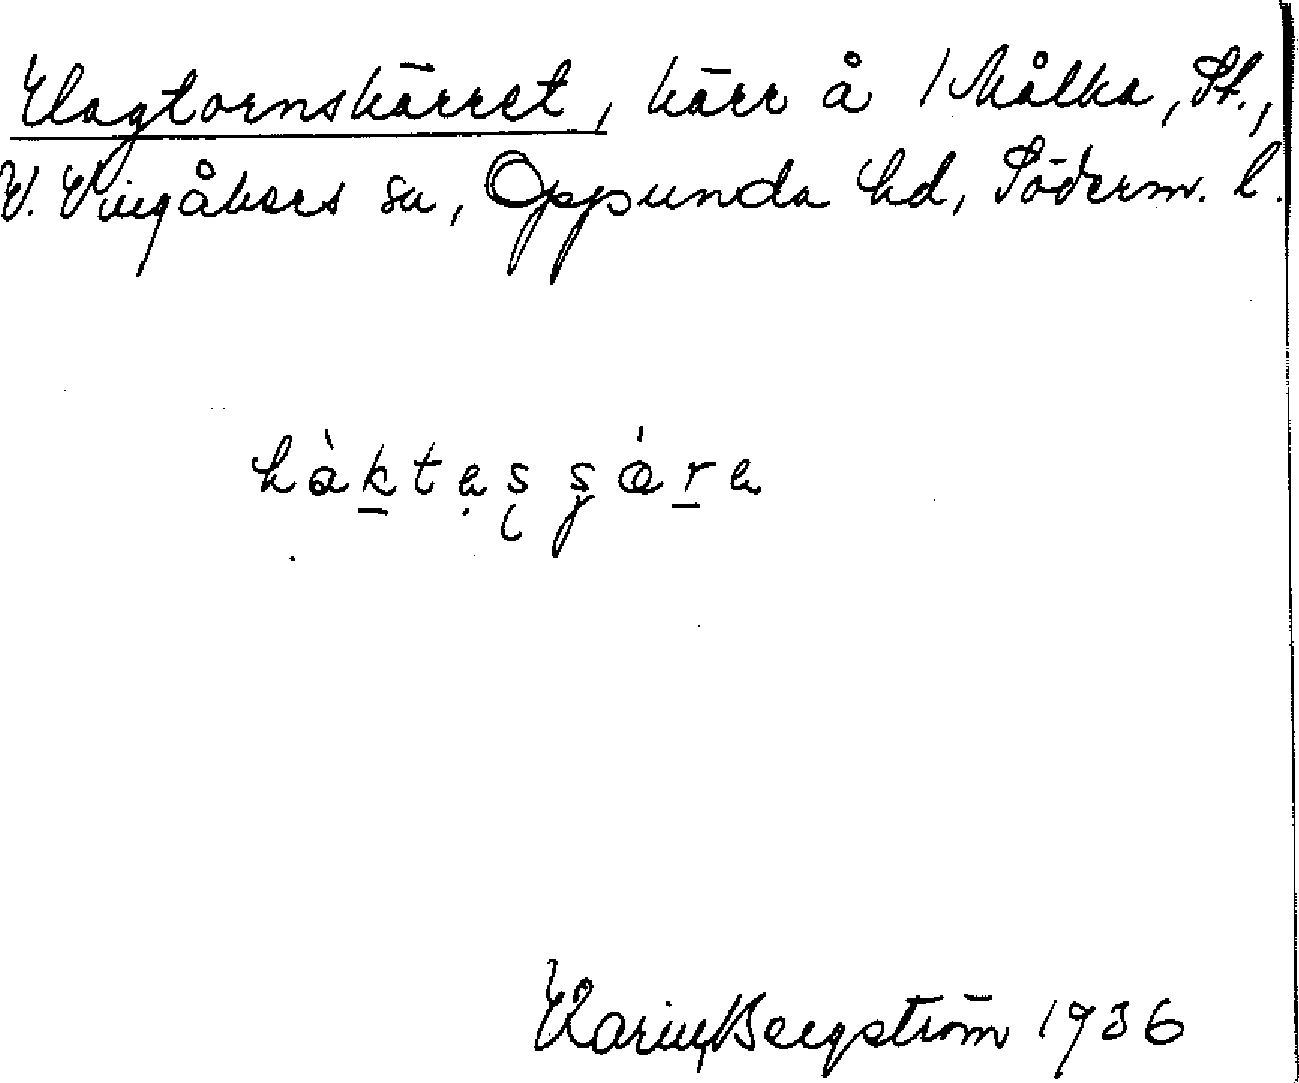 Hagtornskärret, kärr å Målka, St.,
V. Vingåkers sn, Oppunda hd, Söderm. l.
Karin Bergström 1936